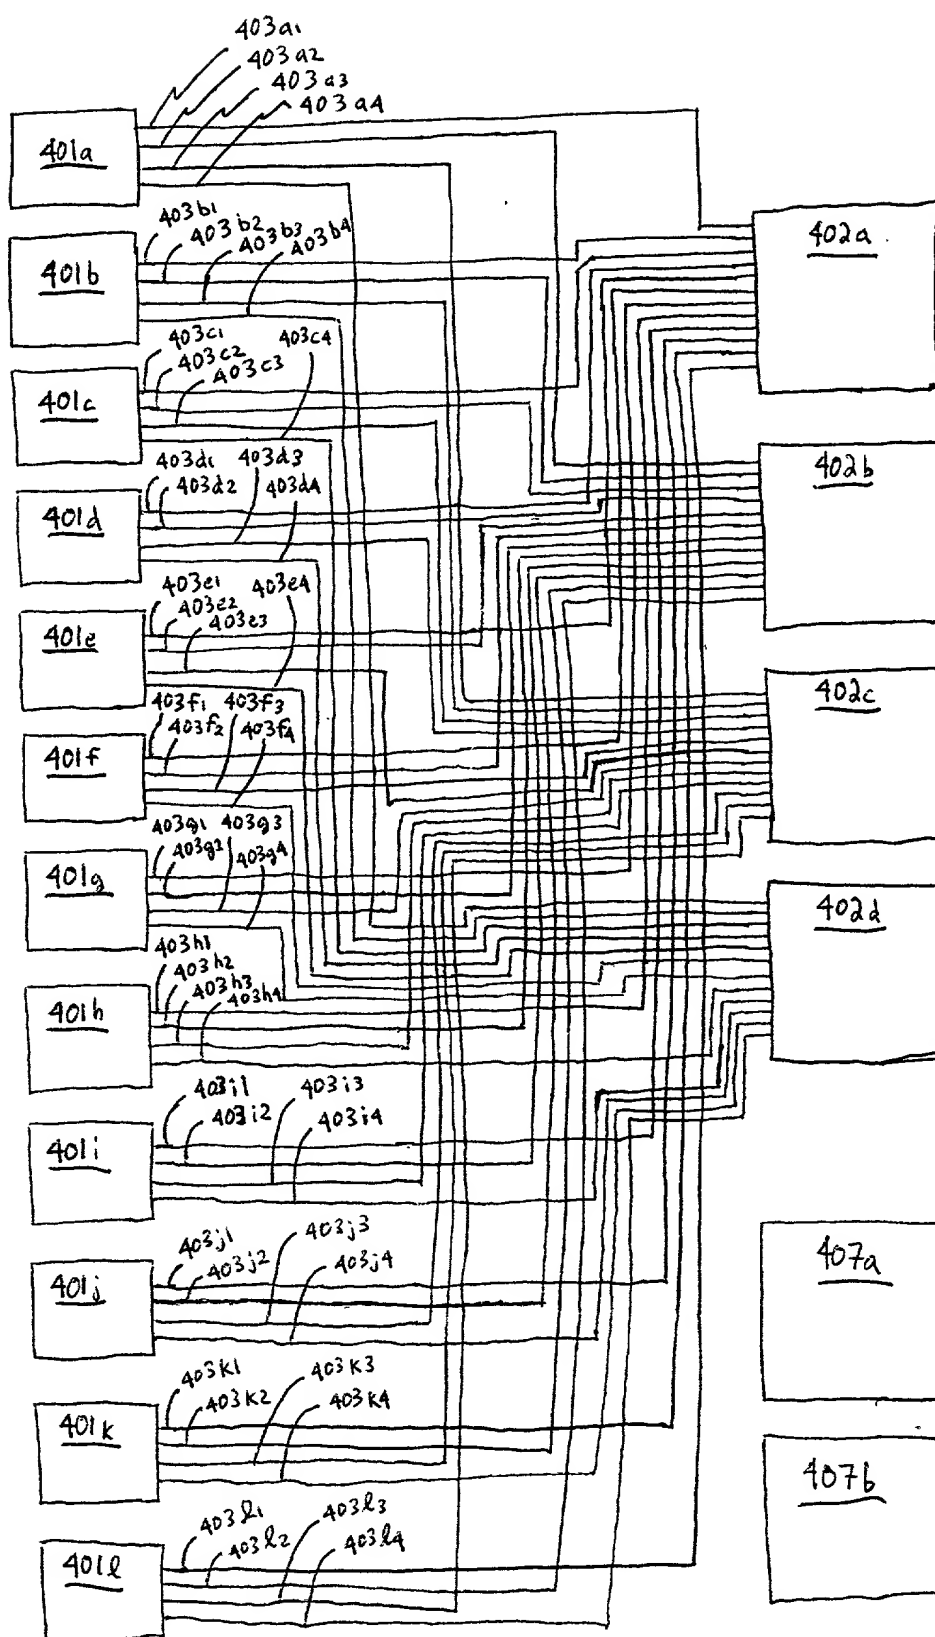 403a1
403a2
403a3
403a4
401a
403b1
403b2
403b3
403b4
402a
401b
403c1
403c2
403c3
403c4
401c
403d1
403d2
403d3
403d4
402b
401d
403e1
403e2
403e3
403e4
401e
403f1
403f2
403f3
403f4
402c
401f
403g1
403g2
403g3
403g4
401g
402d
403h1
403h2
403h3
403h4
401h
403i1
403i2
403i3
403i4
401i
403j1
403j2
403j3
403j4
407a
401j
403k1
403k2
403k3
403k4
401k
407b
403l1
403l2
403l3
403l4
401l